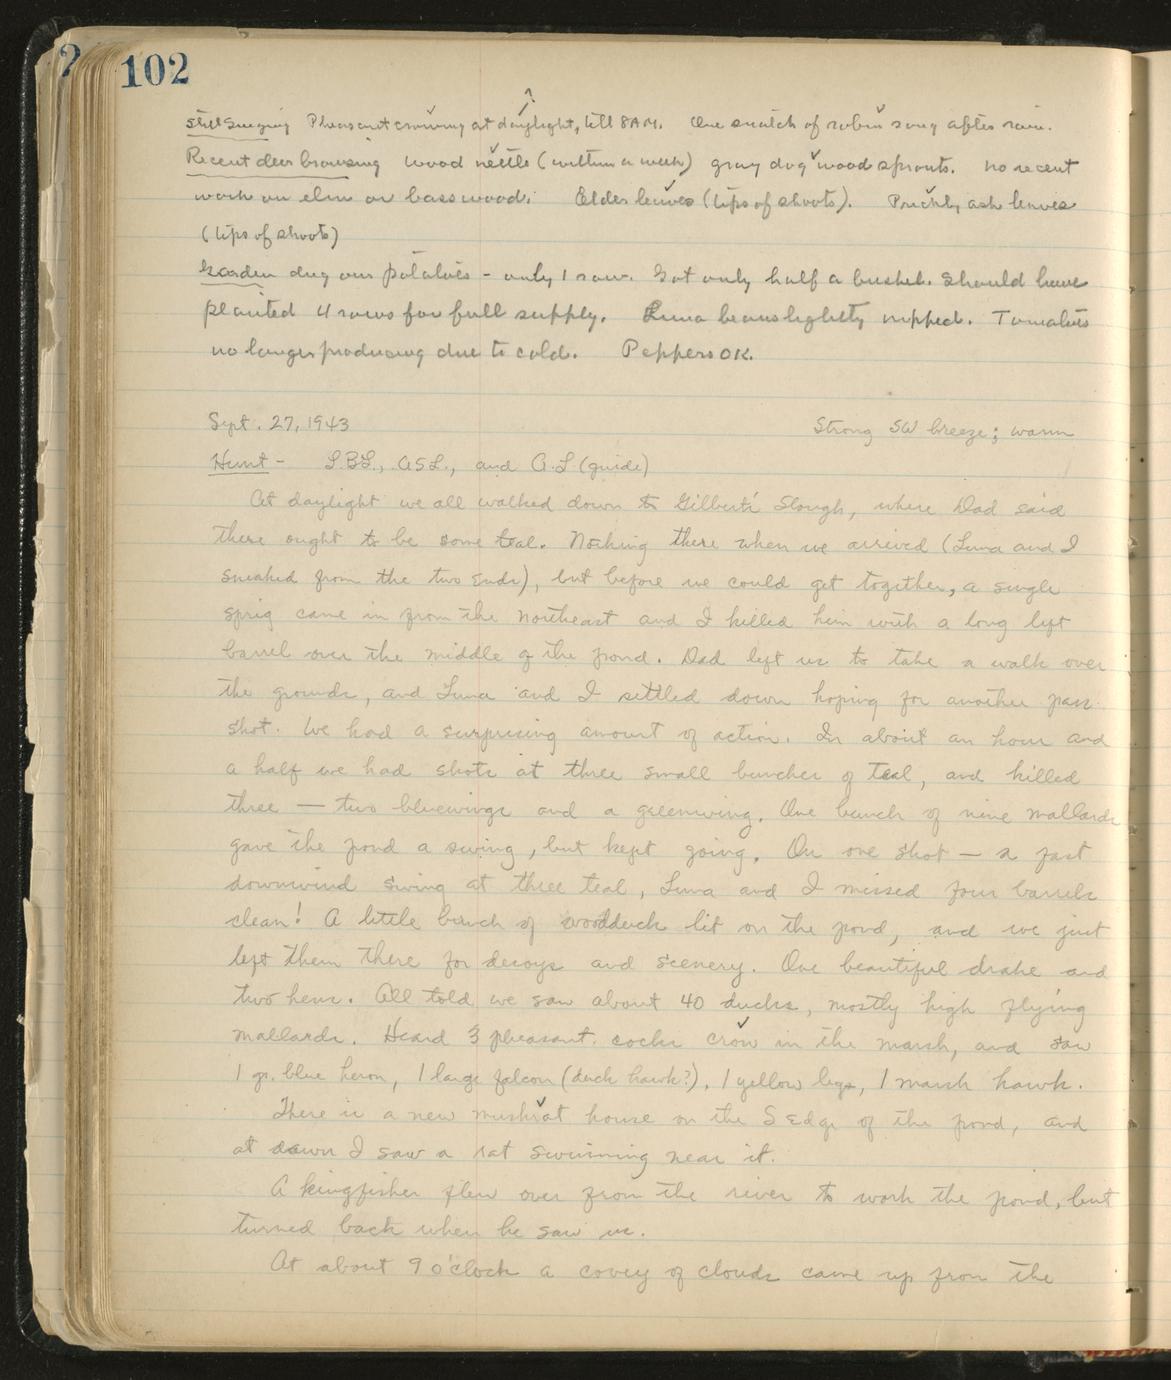 102
Still Singing Pheasant crowing at daylight, till 8 AM. One snatch of robin song after rain.
Recent deer browsing wood nettle (within a week) gray dogwood sprouts. no recent
work on elm or basswood. Elder leaves (tips of shoots). Prickly ash leaves
(tips of shoots)
Garden dug our potatoes - only 1 row. Got only half a bushel. Should have
planted 4 rows for full supply. Lima beans lightly nipped. Tomatoes
no longer producing due to cold. Peppers OK.
Sept. 27, 1943 Strong SW breeze; warm
Hunt - L.B.L., A.S.L., and A.L (guide)
At daylight we all walked down to Gilbert's Slough, where Dad said
there ought to be some teal. Nothing there when we arrived (Luna and I
sneaked from the two ends), but before we could get together, a single
sprig came in from the northeast and I killed him with a long left
barrel over the middle of the pond. Dad left us to take a walk over
the grounds, and Luna and I settled down hoping for another pass
shot. We had a surprising amount of action. In about an hour and
a half we had shots at three small bunches of teal, and killed
three — two bluewings and a greenwing. One bunch of nine mallards
gave the pond a swing, but kept going. On one shot — a fast
downwind swing at three teal, Luna and I missed four barrels
clean! A little bunch of woodduck lit on the pond, and we just
left them there for decoys and scenery. One beautiful drake and
two hens. All told we saw about 40 ducks, mostly high flying
mallards. Heard 3 pheasant cocks crow in the marsh, and saw
1 gr. blue heron, 1 large falcon (duck hawk?), 1 yellow legs, 1 marsh hawk.
There is a new muskrat house on the S Edge of the pond, and
at dawn I saw a rat swimming near it.
A kingfisher flew over from the river to work the pond, but
turned back when he saw us.
At about 9 o'clock a covey of clouds came up from the